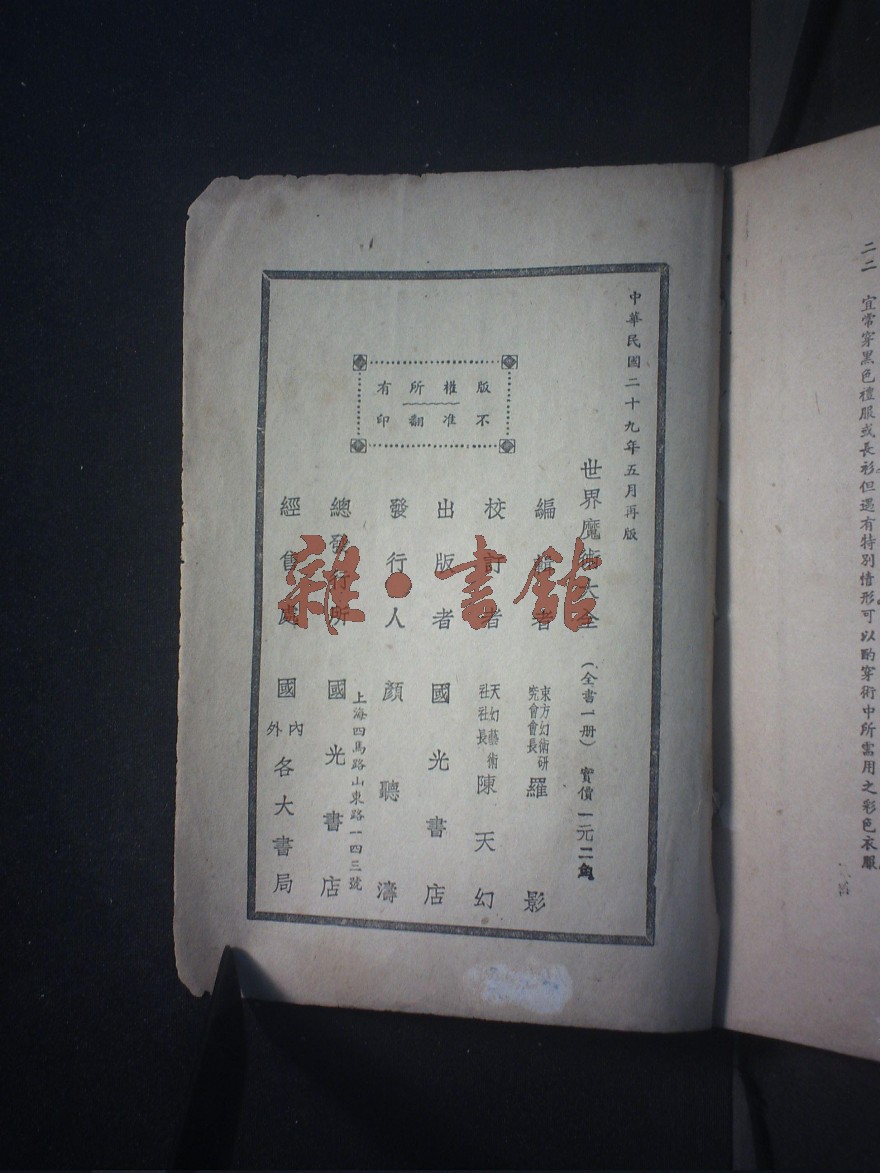 二二 宜常穿黑色禮服或長衫但遇有特別情形可以酌穿術中所需用之彩色衣服
中華民國二十九年五月再版
世界魔術大全 （全書一册） 實價一元二角
編輯者 東方幻術研究會會長 羅影
校訂者 天幻藝術社社長 陳天幻
出版者 國光書店
發行人 顏聽濤
上海四馬路山東路一四三號
總發行所 國光書店
經售處 國內外各大書局
版權所有
不准翻印
雜·書館